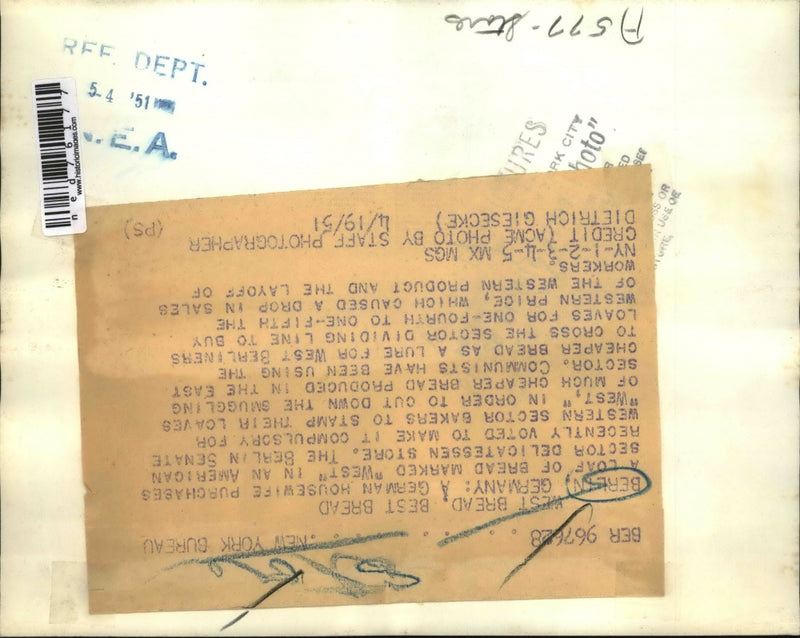 A577-Stare
REF. DEPT.
5-4 '51
N.E.A.
ned76177
www.historicimages.com
URES
RK CITY
hoto"
BER 967628 . . . . . . . . . NEW YORK BUREAU
WEST BREAD, BEST BREAD
BERLIN, GERMANY: A GERMAN HOUSEWIFE PURCHASES
A LOAF OF BREAD MARKED "WEST" IN AN AMERICAN
SECTOR DELICATESSEN STORE. THE BERLIN SENATE
RECENTLY VOTED TO MAKE IT COMPULSORY FOR
WESTERN SECTOR BAKERS TO STAMP THEIR LOAVES
"WEST," IN ORDER TO CUT DOWN THE SMUGGLING
OF MUCH CHEAPER BREAD PRODUCED IN THE EAST
SECTOR. COMMUNISTS HAVE BEEN USING THE
CHEAPER BREAD AS A LURE FOR WEST BERLINERS
TO CROSS THE SECTOR DIVIDING LINE TO BUY
LOAVES FOR ONE-FOURTH TO ONE-FIFTH THE
WESTERN PRICE, WHICH CAUSED A DROP IN SALES
OF THE WESTERN PRODUCT AND THE LAYOFF OF
WORKERS.
NY-1-2-3-4-5 MX MGS
CREDIT (ACME PHOTO BY STAFF PHOTOGRAPHER
DIETRICH GIESECKE) 4/19/51 (PS)